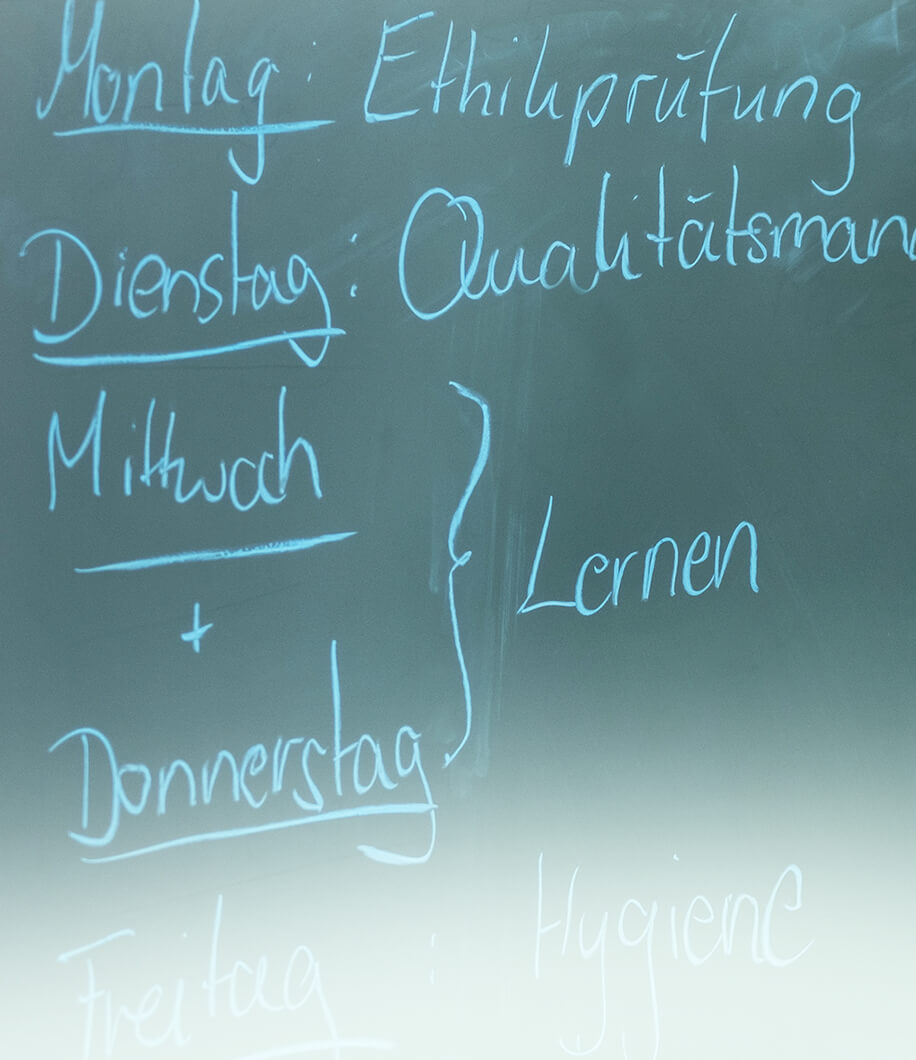 Montag: Ethikprüfung
Dienstag: Qualitätsman
Mittwoch
+
Lernen
Donnerstag
Freitag : Hygiene